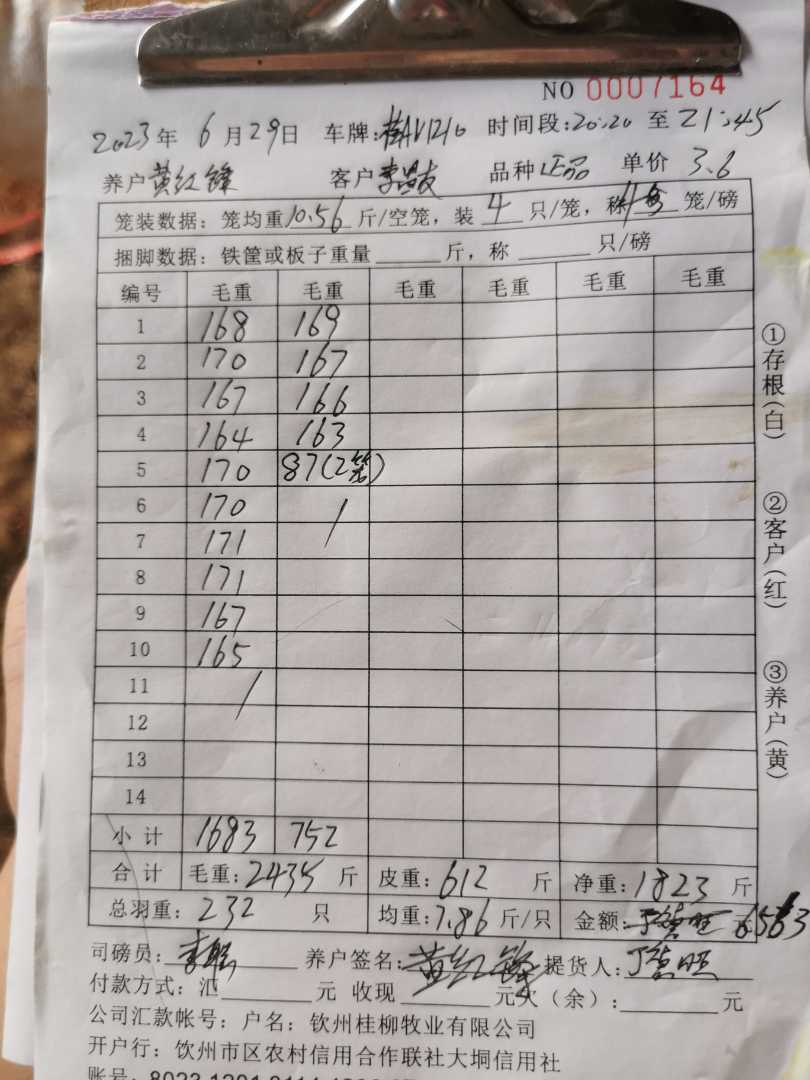 NO 0007164
2023年 6月29日 车牌:桂AV1210 时间段:20:20 至 21:45
养户 黄红锋 客户 李昌友 品种 正品 单价 3.6
笼装数据: 笼均重10.56斤/空笼, 装 4 只/笼, 称 笼/磅
捆脚数据: 铁筐或板子重量______斤, 称______只/磅
编号 毛重 毛重 毛重 毛重 毛重 毛重
1 168 169
2 170 167
3 167 166
4 164 163
5 170 87(2笼)
6 170 /
7 171
8 171
9 167
10 165
11 /
12
13
14
小 计 1683 752
合 计 毛重:2435 斤 皮重:612 斤 净重:1823 斤
总羽重:232 只 均重:7.86 斤/只 金额: 6563
司磅员: 养户签名:黄红锋 提货人:
付款方式: 汇______元 收现______元欠(余):______元
公司汇款帐号: 户名: 钦州桂柳牧业有限公司
开户行: 钦州市区农村信用合作联社大垌信用社
账号:
①存根(白)
②客户(红)
③养户(黄)